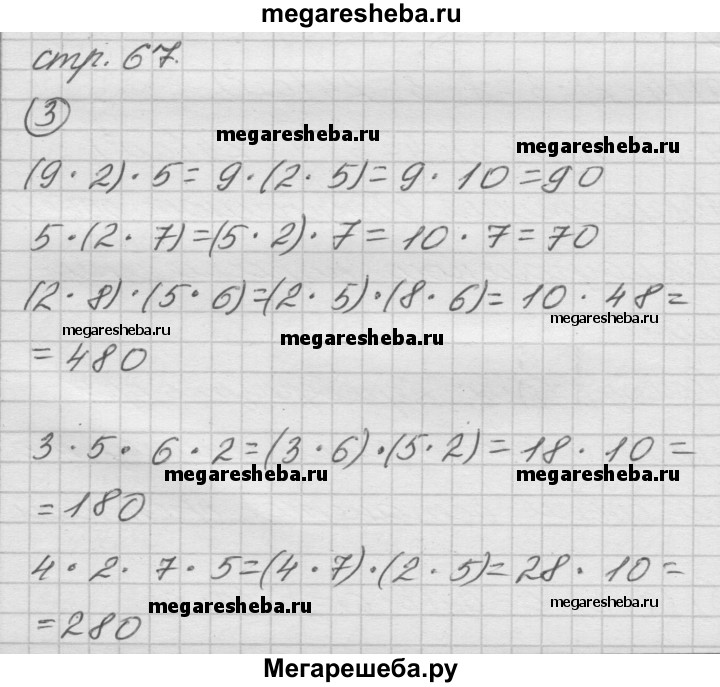 megaresheba.ru
стр. 67.
3
megaresheba.ru
megaresheba.ru
(9 · 2) · 5 = 9 · (2 · 5) = 9 · 10 = 90
5 · (2 · 7) = (5 · 2) · 7 = 10 · 7 = 70
(2 · 8) · (5 · 6) = (2 · 5) · (8 · 6) = 10 · 48 =
megaresheba.ru
megaresheba.ru
megaresheba.ru
= 480
3 · 5 · 6 · 2 = (3 · 6) · (5 · 2) = 18 · 10 =
megaresheba.ru
megaresheba.ru
= 180
4 · 2 · 7 · 5 = (4 · 7) · (2 · 5) = 28 · 10 =
megaresheba.ru
megaresheba.ru
= 280
Мегарешеба.ру